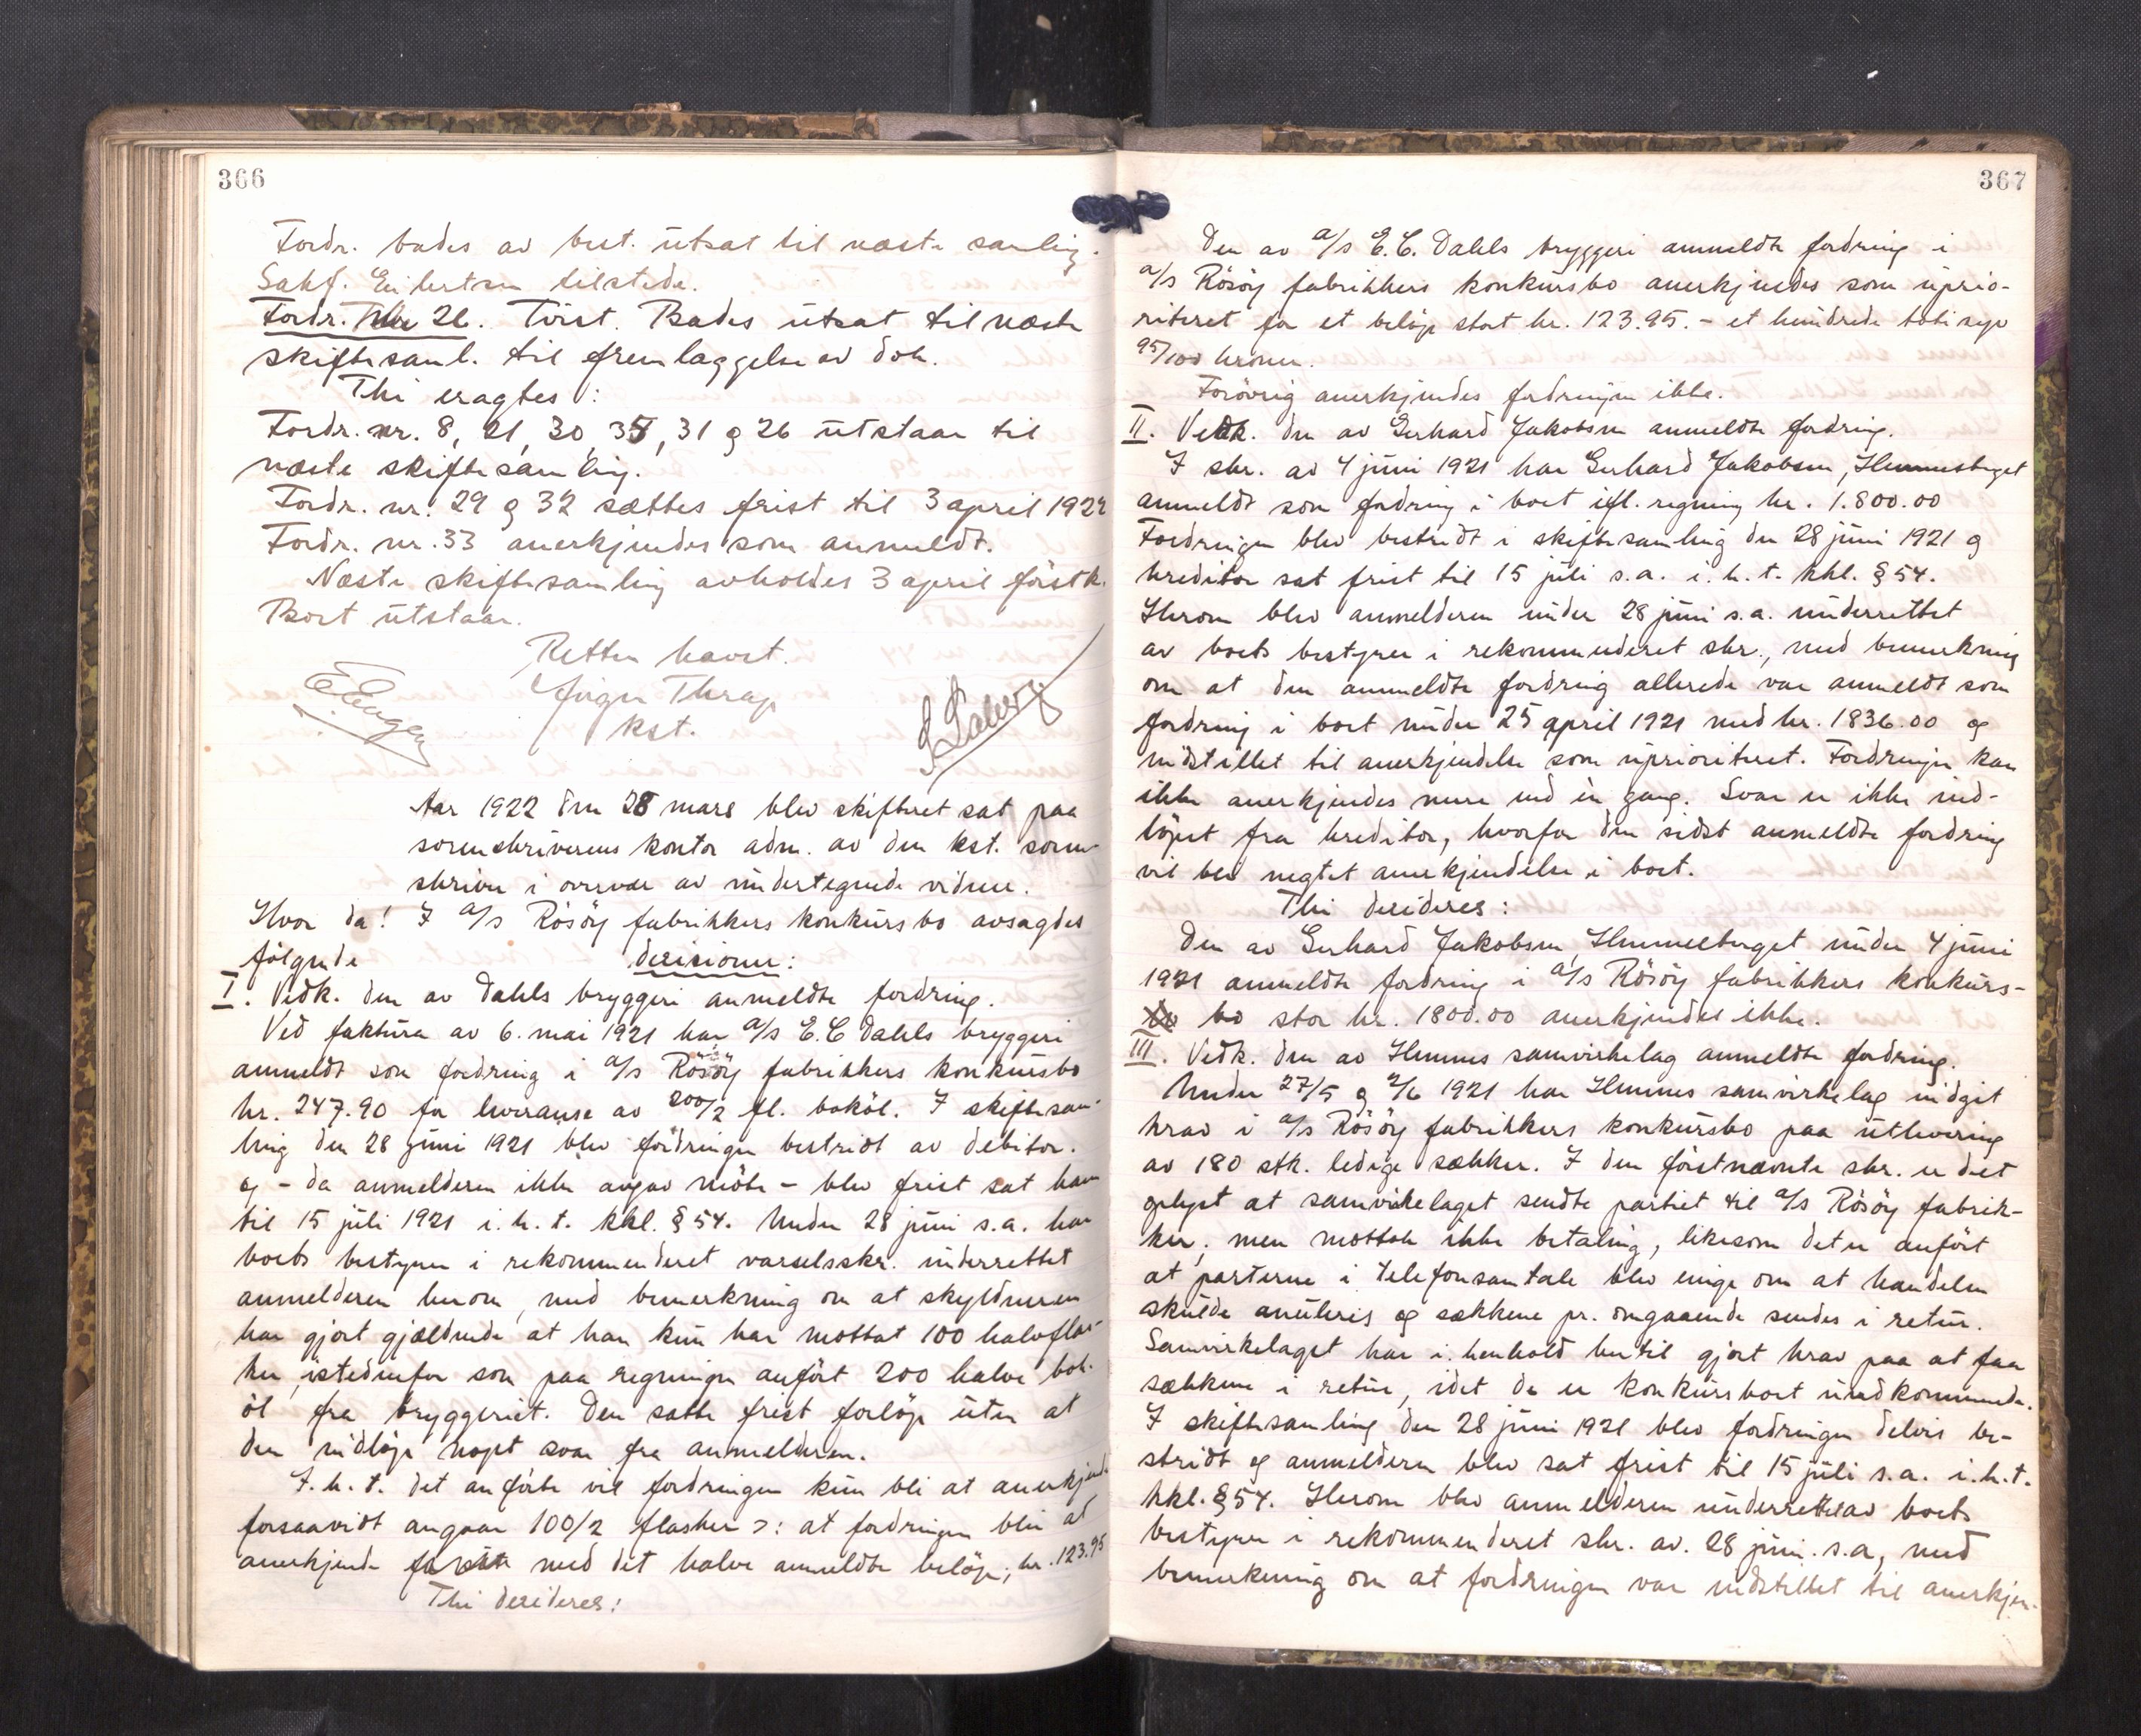 366
Fordr. bades av best. utsat til næste samling.
Sakf. Eilertsen tilstede.
Fordr. Nr 26. Tvist. Bades utsat til næste
skiftesaml. til fremlæggelse av dok.
Thi eragtes:
Fordr. nr. 8, 21, 30, 35, 31 og 26 utstaar til
næste skiftesamling.
Fordr. nr. 29 og 32 sættes frist til 3 april 1922
Fordr. nr. 33 anerkjendes som anmeldt.
Næste skiftesamling avholdes 3 april førstk.
Boet utstaar.
Retten hævet.
Thrap
kst.
Aar 1922 den 28 mars blev skifteret sat paa
sorenskriverens kontor adm. av den kst. soren-
skriver i overvær av undertegnede vidner.
Hvor da! I a/s Rösöy fabrikkers konkursbo avsagdes
følgende decisioner:
I. Vedk. den av Dahls bryggeri anmeldte fordring.
Ved faktura av 6. mai 1921 har a/s E.C. Dahls bryggeri
anmeldt som fordring i a/s Rösöy fabrikkers konkursbo
kr. 247.90 for leveranse av 200/2 fl. boköl. I skiftesam-
ling den 28 juni 1921 blev fordringen bestridt av debitor.
og - da anmelderen ikke avgav möte - blev frist sat ham
til 15 juli 1921 i. h. t. kkl. § 54. Under 28 juni s.a. har
boets bestyrer i rekommenderet varselsskr. underrettet
anmelderen herom, med bemerkning om at skyldneren
har gjort gjældende at han kun har mottat 100 halvflas-
ker, istedenfor som paa regningen anfört 200 halve bok-
öl fra bryggeriet. Den satte frist forlöp uten at
den indlöp noget svar fra anmelderen.
I. h. t. det anförte vil fordringen kun bli at anerkjende
forsaavidt angaar 100/2 flasker ɔ: at fordringen blir at
anerkjende med det halve anmeldte belöp, kr. 123.95
Thi decideres:
367
Den av a/s E.C. Dahls bryggeri anmeldte fordring i
a/s Rösöy fabrikkers konkursbo anerkjendes som uprio-
riteret for et belöp stort kr. 123.95. - et hundrede toti og
95/100 kroner.
Forövrig anerkjendes fordringen ikke.
II. Vedk. den av Gerhard Jakobsen anmeldte fordring.
I skr. av 4 juni 1921 har Gerhard Jakobsen, Hemnesberget
anmeldt som fordring i boet ifl. regning kr. 1.800.00
Fordringen blev bestridt i skiftesamling den 28 juni 1921 og
kreditor sat frist til 15 juli s.a. i. h. t. kkl. § 54.
Herom blev anmelderen under 28 juni s.a. underrettet
av boets bestyrer i rekommenderet skr., med bemerkning
om at den anmeldte fordring allerede var anmeldt som
fordring i boet under 25 april 1921 med kr. 1836.00 og
indstillet til anerkjendelse som uprioriteret. Fordringen kan
ikke anerkjendes mere end én gang. Svar er ikke ind-
löpet fra kreditor, hvorfor den sidst anmeldte fordring
vil bli negtet anerkjendelse i boet.
Thi decideres:
Den av Gerhard Jakobsen, Hemnesberget under 4 juni
1921 anmeldte fordring i a/s Rösöy fabrikkers konkurs-
bo stor kr. 1800.00 anerkjendes ikke.
III. Vedk. den av Hemnes samvirkelag anmeldte fordring.
Under 27/5 og 2/6 1921 har Hemnes samvirkelag indgit
krav i a/s Rösöy fabrikkers konkursbo paa utlevering
av 180 stk. ledige sækker. I den förstnævnte skr. er det
oplyst at samvirkelaget sendte partiet til a/s Rösöy fabrik-
ker, men mottok ikke betaling, likesom det er anfört
at parterne i telefonsamtale blev enige om at handelen
skulde anuleres og sækkene pr. omgaaende sendes i retur.
Samvirkelaget har i henhold hertil gjort krav paa at faa
sækkene i retur, idet de er konkursboet uvedkommende.
I skiftesamling den 28 juni 1921 blev fordringen delvis be-
stridt og anmelderen blev sat frist til 15 juli s.a. i. h. t.
kkl. § 54. Herom blev anmelderen underrettet av boets
bestyrer i rekommenderet skr. av. 28 juni. s.a, med
bemerkning om at fordringen var indstillet til anerkjen-